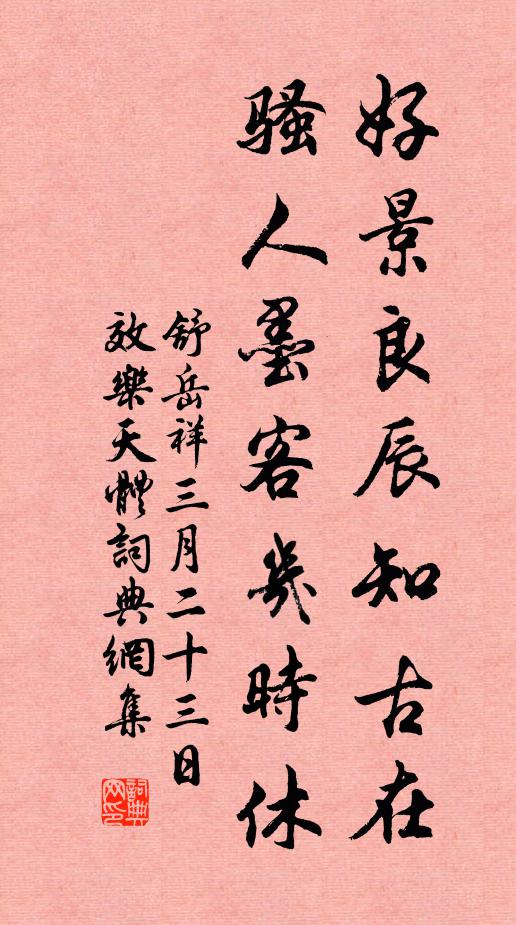 好景良辰知古在
騷人墨客幾時休
舒岳祥三月二十三日
效樂天體詞典網集
詞典網印